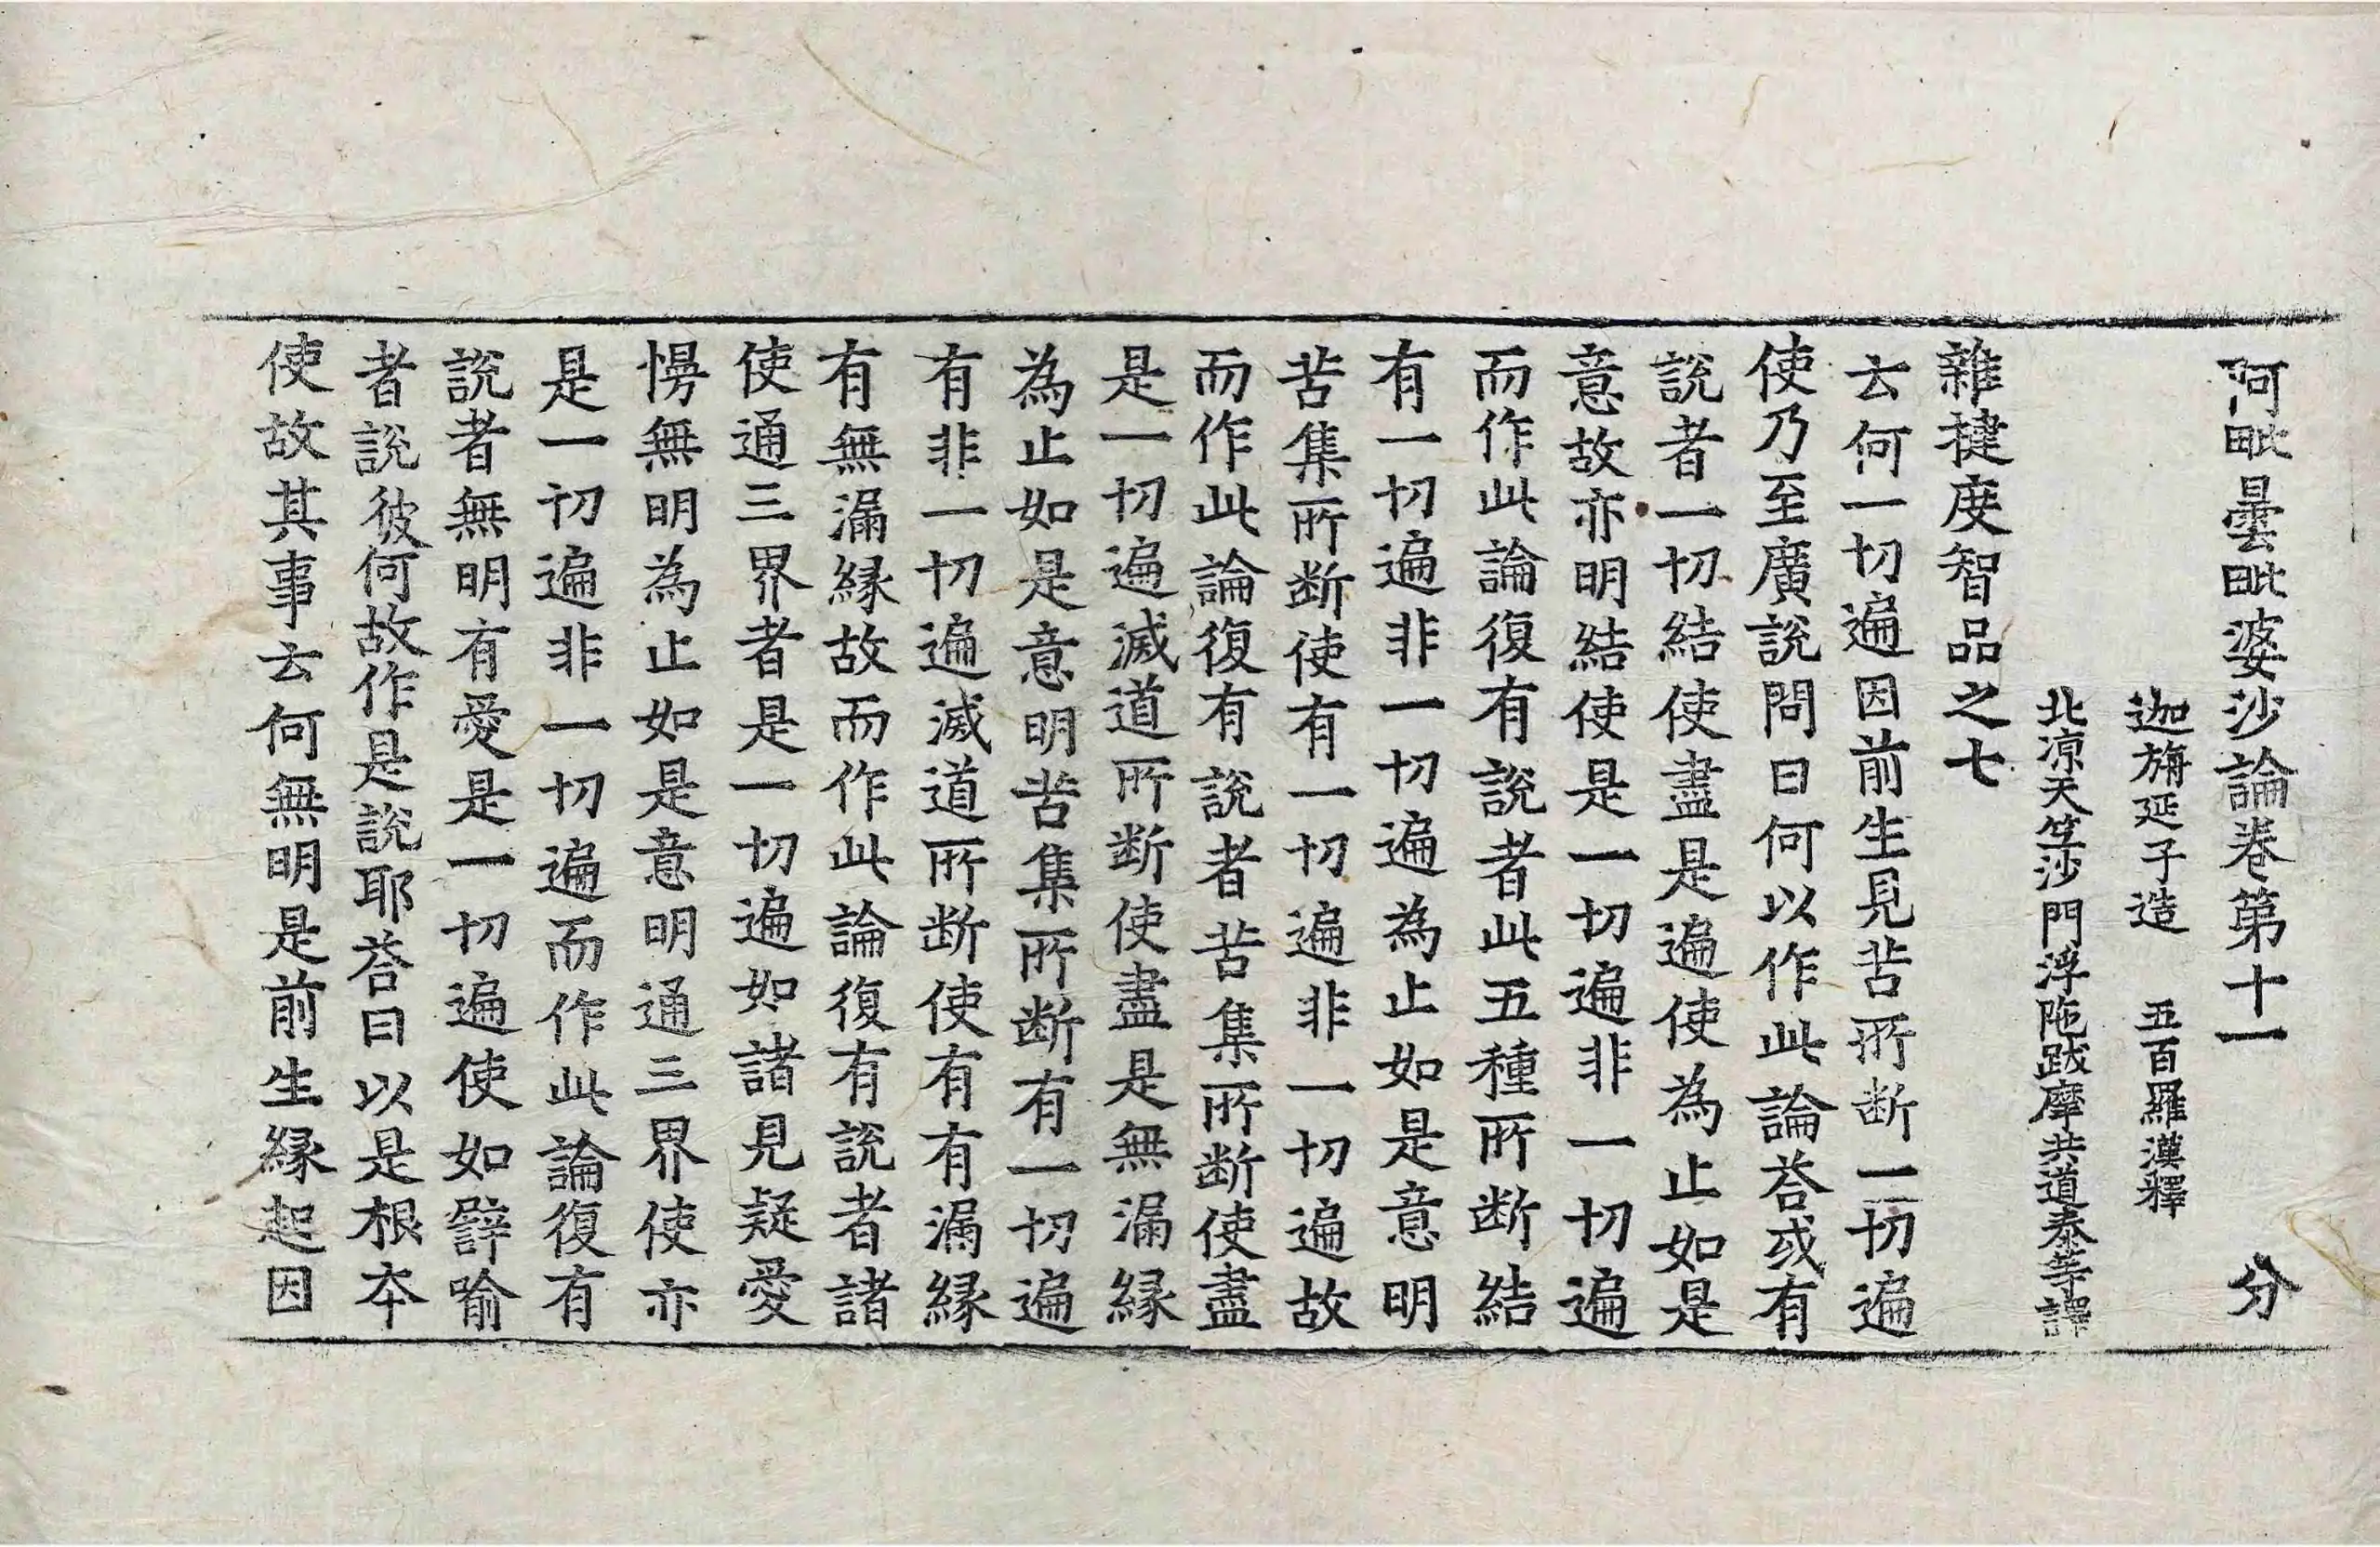 阿毗曇毗婆沙論卷第十一 分
迦旃延子造 五百羅漢釋
北涼天竺沙門浮陁跋摩共道泰等譯
雜揵度智品之七
云何一切遍因前生見苦所断一切遍
使乃至廣說問曰何以作此論荅或有
說者一切結使盡是遍使為止如是
意故亦明結使是一切遍非一切遍
而作此論復有說者此五種所断結
有一切遍非一切遍為止如是意明
苦集所断使有一切遍非一切遍故
而作此論復有說者苦集所断使盡
是一切遍滅道所断使盡是無漏緣
為止如是意明苦集所断有一切遍
有非一切遍滅道所断使有有漏緣
有無漏緣故而作此論復有說者諸
使通三界者是一切遍如諸見疑愛
慢無明為止如是意明通三界使亦
是一切遍非一切遍而作此論復有
說者無明有愛是一切遍使如辟喻
者說彼何故作是說耶荅曰以是根本
使故其事云何無明是前生緣起因